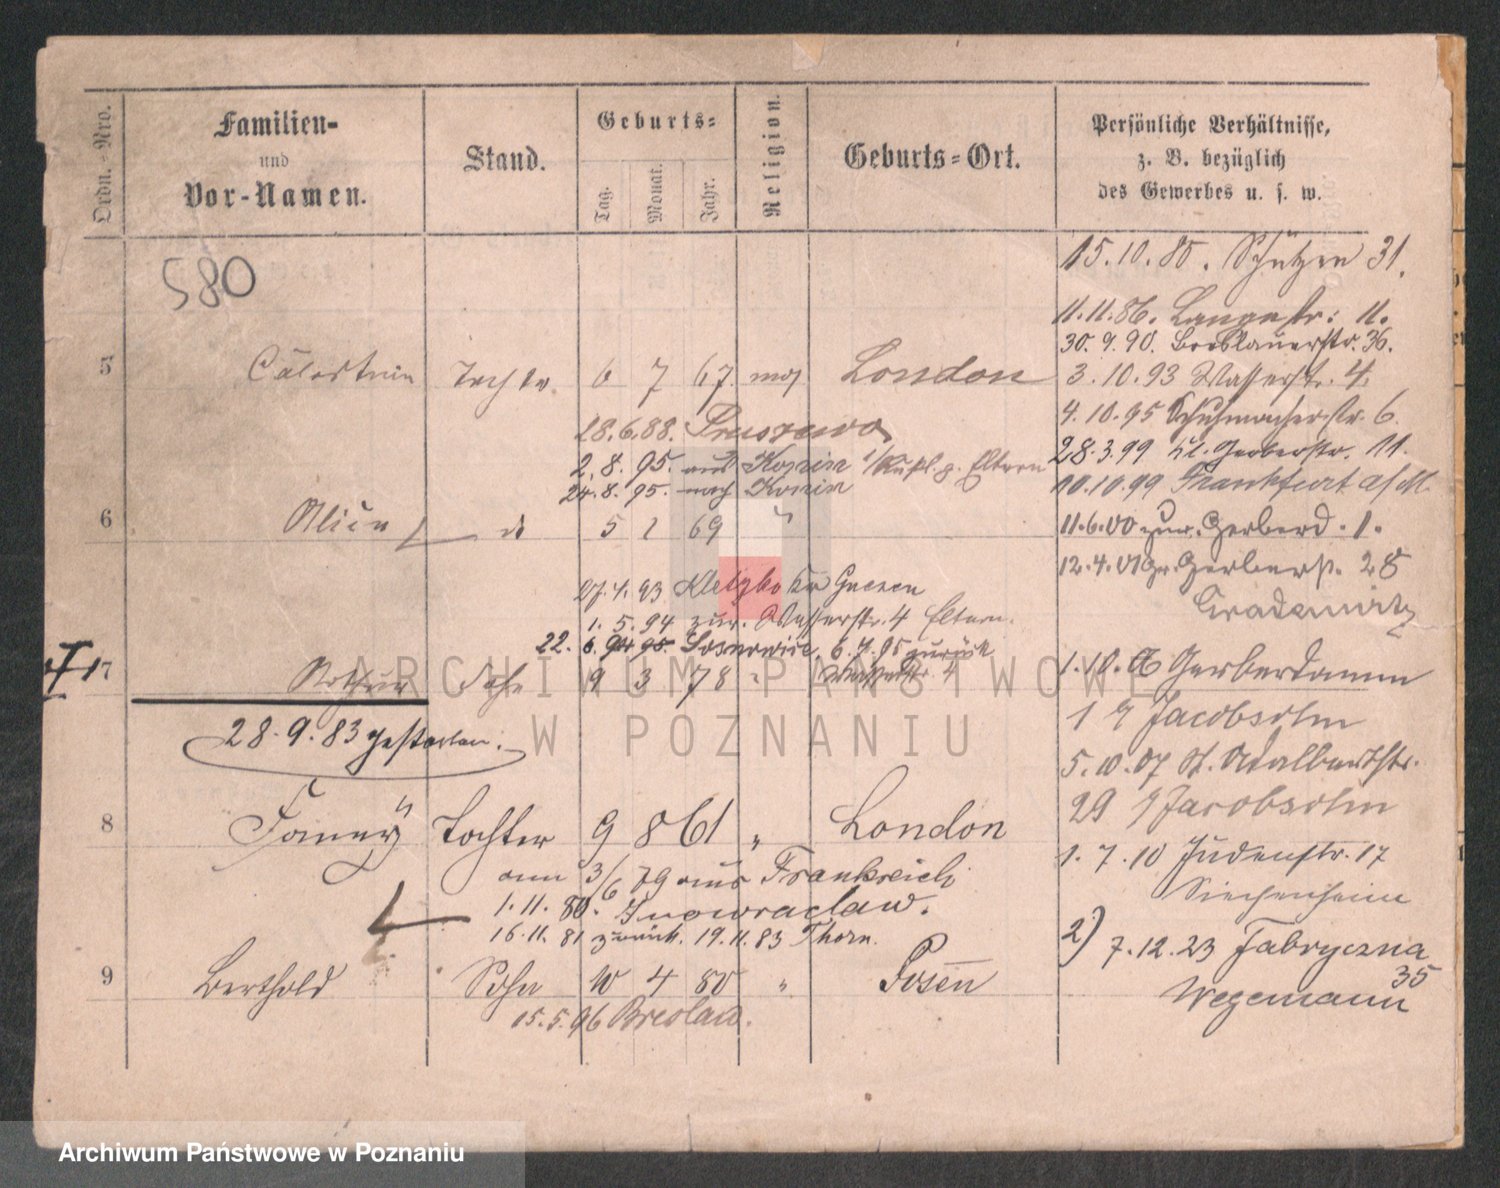 Ordn.-Nro.
Familien-
und
Vor-Namen.
Stand.
Geburts-
Tag.
Monat.
Jahr.
Religion.
Geburts-Ort.
Persönliche Verhältnisse,
z. B. bezüglich
des Gewerbes u. s. w.
580
15.10.85. Schützen 31.
11.11.86. Langestr: 11.
30.9.90. Breslauerstr. 36.
5 Cälestin Tochter 6 7 67. mos London
3.10.93 Wasserstr. 4.
4.10.95 Schuhmacherstr. 6.
28.6.88.
28.3.99 Kl. Gerberstr. 11.
2.8.95. aus Konin Eltern
24.8.95. nach Konin
10.10.99 Frankfurt a/M.
6 do 5 1 69
11.6.00 zur. Gerberd. 1.
12.4.01 Gr. Gerberstr. 28
Gradenwitz
27.4.93 Kletzko Kr Gnesen
1.5.94 zur. Wasserstr. 4 Eltern.
22. 6. 95. Sosnowice, 6.7.95 zurück
Wasserstr 4
7 Arthur Sohn 9 3 78 "
1.10.06 Gerberdamm
28.9.83 gestorben.
1 9 Jacobsohn
5.10.07 St. Adalbertstr.
29 9 Jacobsohn
8 Fanny Tochter 9 8 61 " London
1.7.10 Judenstr. 17
Siechenheim
am 3/6 79 aus Frankreich
1.11.80. Inowraclaw.
16.11.81 zurück. 19.11.83 Thorn.
2) 7.12.23 Fabryczna
35
Wegemann
9 Berthold Sohn 10 4 80 " Posen
15.5.96 Breslau.
ARCHIWUM PAŃSTWOWE
W POZNANIU
Archiwum Państwowe w Poznaniu